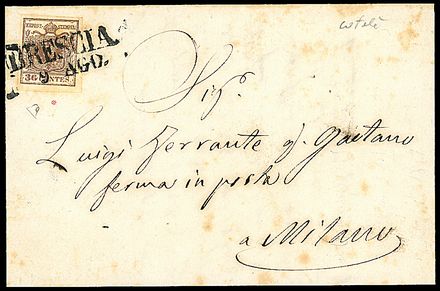 KKKPOST-STEMPEL
BRESCIA
9 AGO.
30 CENTES.
Sig.r
Luigi Ferrante q. Gaetano
ferma in posta
a Milano